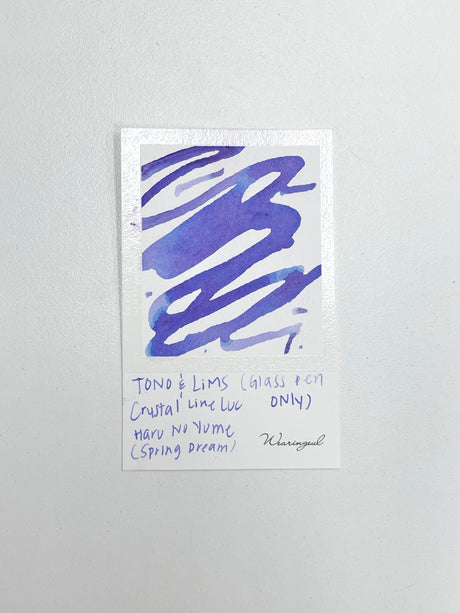 TONO & LiMS (Glass Pen
Crystal Line Luc ONLY)
Haru No Yume
(Spring Dream)
Wearingeul